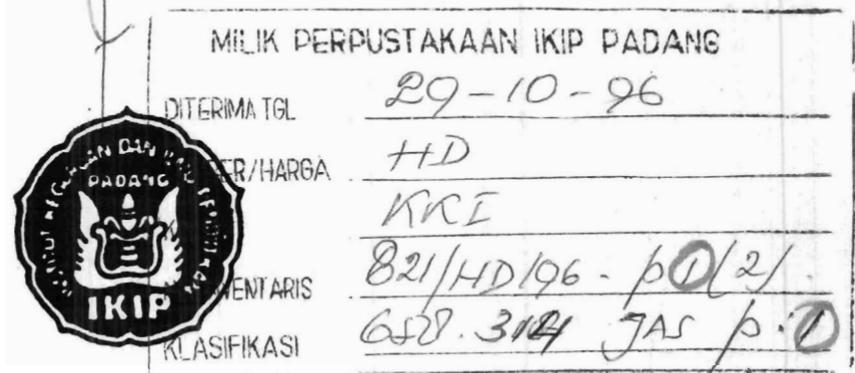 MILIK PERPUSTAKAAN IKIP PADANG
DITERIMA TGL 29-10-96
ER/HARGA HD
KKI
ENTARIS 821/HD/96 - p①(2)
KLASIFIKASI JAS p.①
DAN
PADANG
IKIP